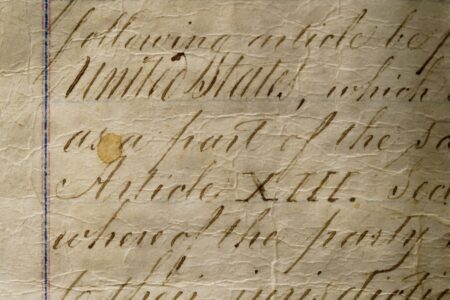 following article be
United States, which
as a part of the sa
Article XIII. Sec
where of the party
to their jurisdictio